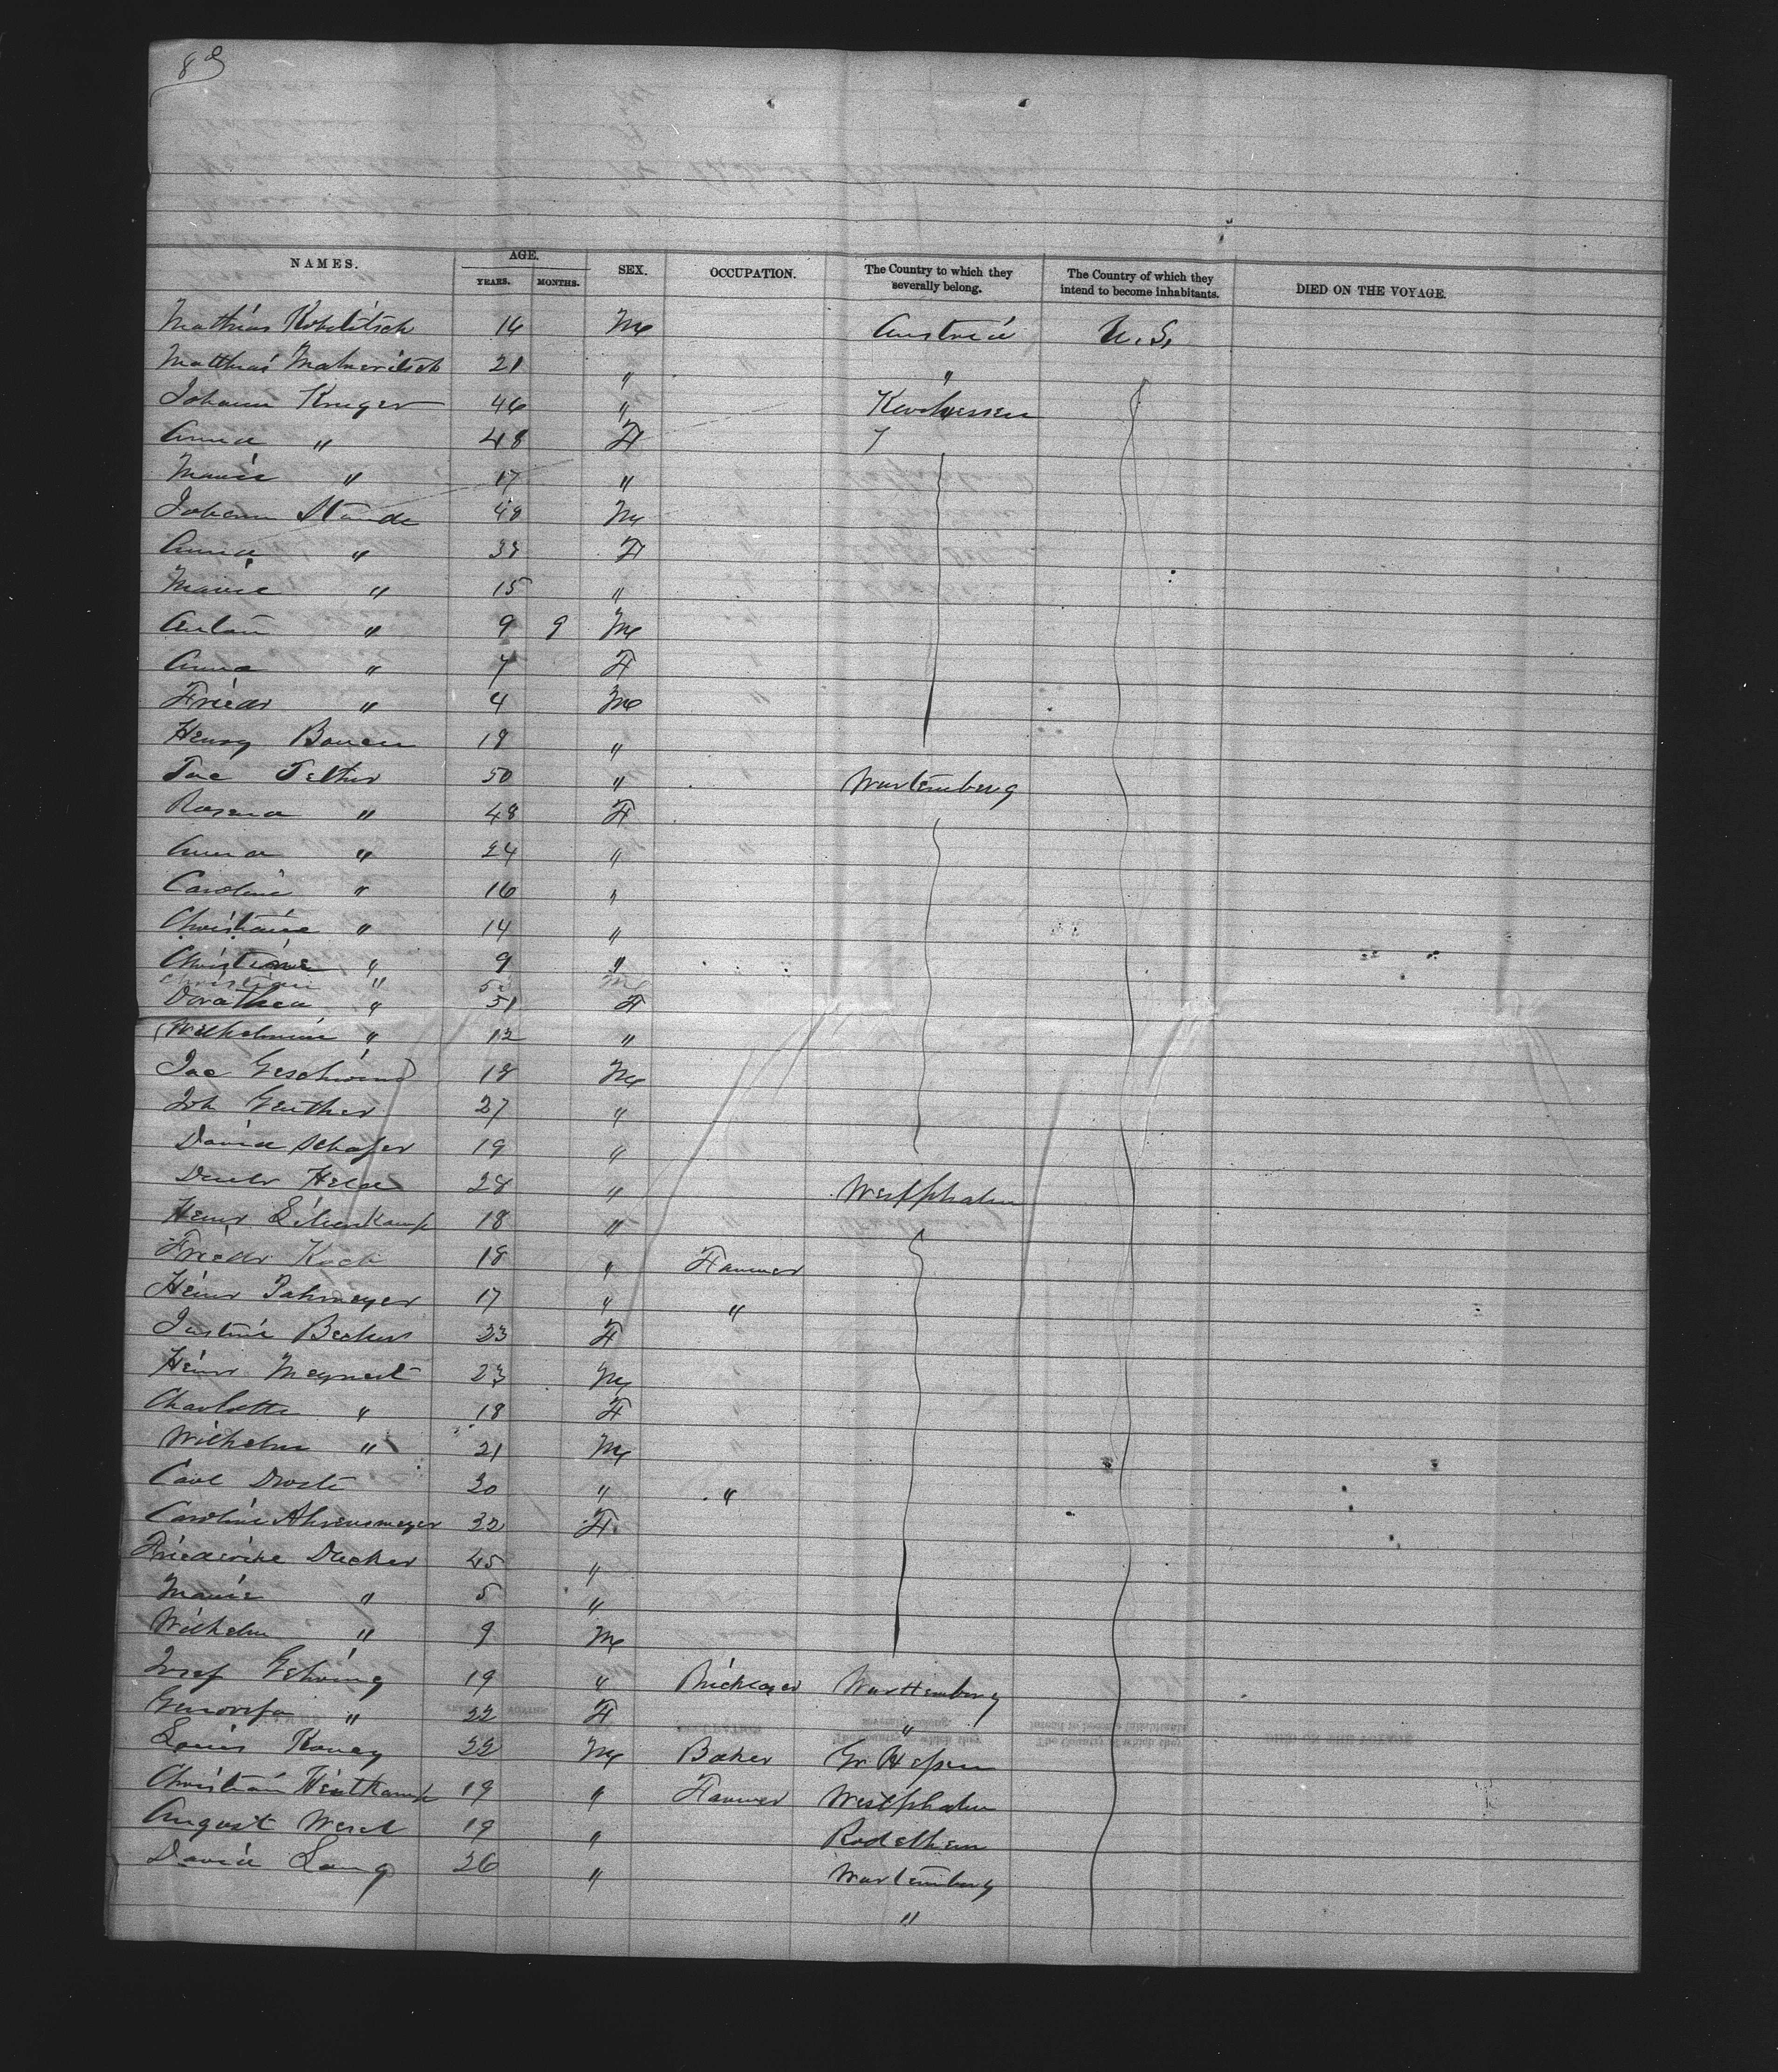 8
NAMES. AGE. YEARS. MONTHS. SEX. OCCUPATION. The Country to which they severally belong. The Country of which they intend to become inhabitants. DIED ON THE VOYAGE.
Mathias Kobelitsch 16 M Austria U.S.
Matthias 21 " "
Johann Kruger 46 " Kurhessen
Anna " 48 F
Marie " 17 "
Johann Staude 48 M
Anna " 38 F
Marie " 15 "
Anton " 9 9 M
Anna " 7 F
Friedr " 4 M
Henry Bauer 18 "
Jac 50 " Wurtemberg
Rosena " 48 F
Anna " 24 "
Caroline " 16 "
Christiane " 14 "
Christine " 9 "
Christian " M
Dorathea " 51 F
Wilhelmine " 12 "
Jac Geschwind 18 M
Joh Genther 27 "
David Schafer 19 "
Held 28 " Westphalen
Heinr 18 "
Friedr Koch 18 " Farmer
Heinr 17 " "
Justine Beckers 23 F
Heinr Meynert 23 M
Charlotte " 18 F
Wilhelm " 21 M
Carl Droste 30 " "
Caroline Ahrensmeyer 32 F
Friederike Decker 45 "
Marie " 5 "
Wilhelm " 9 M
Josef Gehring 19 " Bricklayer Wurttemberg
Genovefa " 22 F "
Louis 22 M Baker Gr Hessen
Christian 19 " Farmer Westphalen
August 19 " Rodelheim
David Lang 26 " Wurtemberg
"